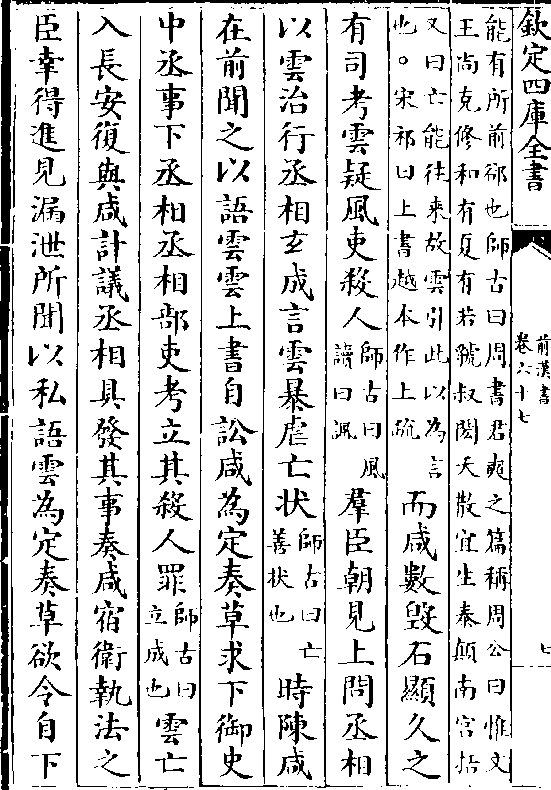 欽定四庫全書
前漢書
卷六十七
七
能有所前郤也師古曰周書君奭之篇稱周公曰惟文
王尚克修和有夏有若虢叔閎夭散宜生泰顛南宮括
又曰亡能徃來故雲引此以為言
也○宋祁曰上書越本作上疏
而咸數毀石顯久之
有司考雲疑風吏殺人師古曰風讀曰諷羣臣朝見上問丞相
以雲治行丞相玄成言雲暴虐亡狀師古曰亡善状也時陳咸
在前聞之以語雲雲上書自訟咸為定奏草求下御史
中丞事下丞相丞相部吏考立其殺人罪師古曰立成也雲亡
入長安復與咸計議丞相具發其事奏咸宿衛執法之
臣幸得進見漏泄所聞以私語雲為定奏草欲令自下